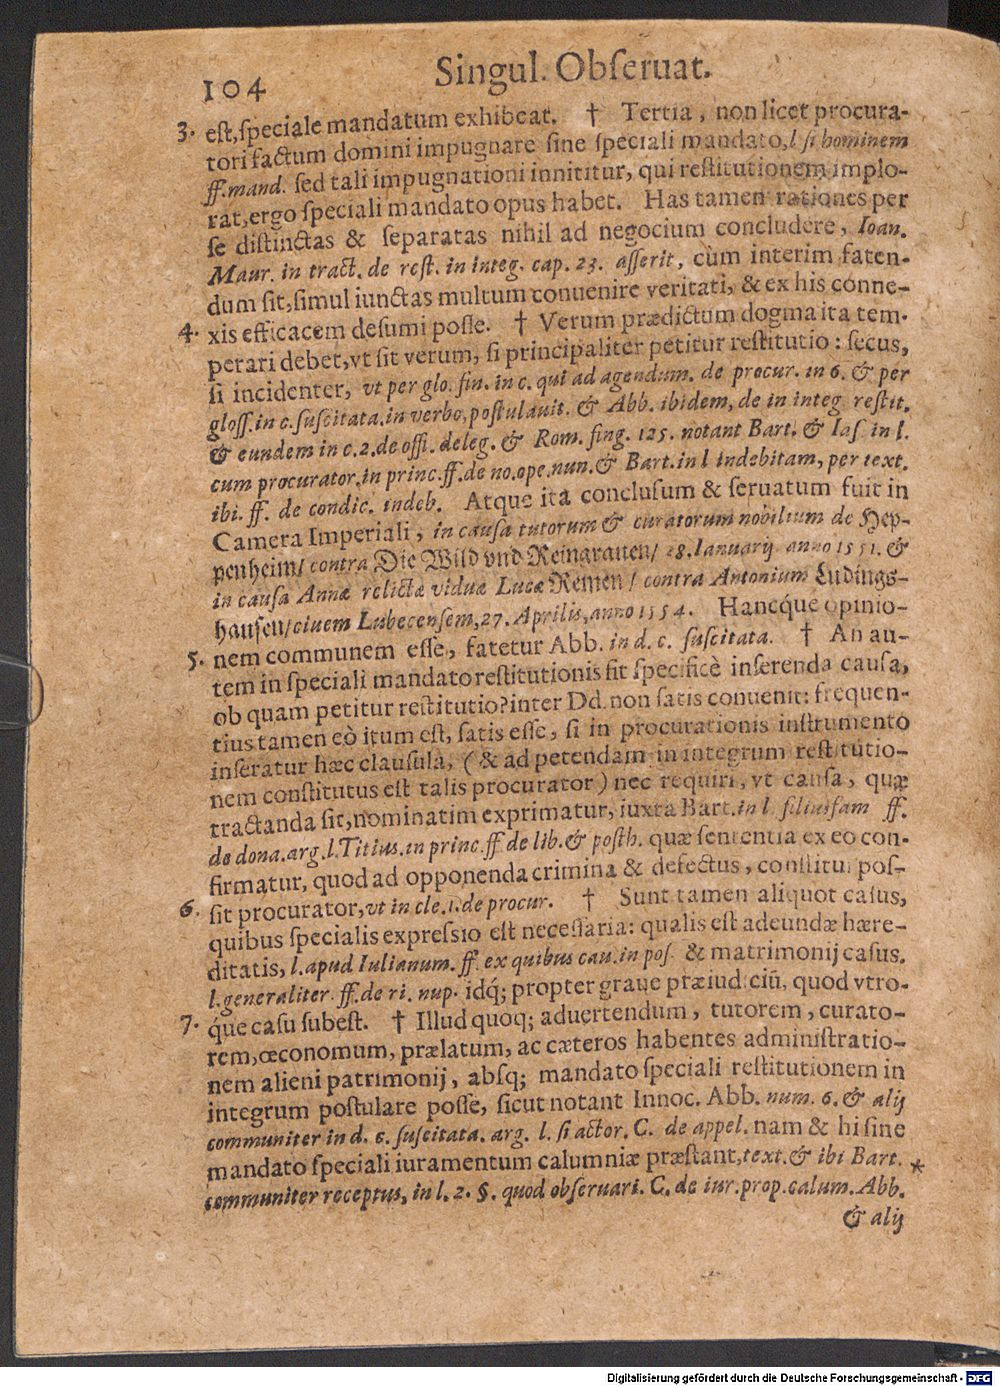 104 Singul. Obſeruat.
3. eſt, ſpeciale mandatum exhibeat. † Tertia, non licet procura-
tori factum domini impugnare ſine ſpeciali mandato, l ſi hominem
ff. mand. ſed tali impugnationi innititur, qui reſtitutionem implo-
rat, ergo ſpeciali mandato opus habet. Has tamen rationes per
ſe diſtinctas & ſeparatas nihil ad negocium concludere, Ioan.
Maur. in tract. de reſt. in integ. cap. 23. aſſerit, cùm interim faten-
dum ſit, ſimul iunctas multum conuenire veritati, & ex his conne-
4. xis efficacem deſumi poſſe. † Verum prædictum dogma ita tem-
perari debet, vt ſit verum, ſi principaliter petitur reſtitutio: ſecus,
ſi incidenter, vt per glo. fin. in c. qui ad agendum. de procur. in 6. & per
gloſſ. in c. ſuſcitata. in verbo, poſtulauit. & Abb. ibidem, de in integ reſtit.
& eundem in c. 2. de offi. deleg. & Rom. ſing. 125. notant Bart. & Iaſ in l.
cum procurator. in princ. ff. de no. ope. nun. & Bart. in l indebitam, per text.
ibi. ff. de condic. indeb. Atque ita concluſum & ſeruatum fuit in
Camera Imperiali, in cauſa tutorum & curatorum nobilium de Hep-
penheim/ contra Die Wild vnd Reingrauen/ 28. Ianuarij anno 1551. &
in cauſa Annæ relictæ viduæ Lucæ Remen/ contra Antonium Ludings-
hauſen/ ciuem Lubecenſem, 27. Aprilis, anno 1554. Hancq́ue opinio-
5. nem communem eſſe, fatetur Abb. in d. c. ſuſcitata. † An au-
tem in ſpeciali mandato reſtitutionis ſit ſpecificè inſerenda cauſa,
ob quam petitur reſtitutio? inter Dd. non ſatis conuenit: frequen-
tius tamen eò itum eſt, ſatis eſſe, ſi in procurationis inſtrumento
inſeratur hæc clauſula, (& ad petendam in integrum reſtitutio-
nem conſtitutus eſt talis procurator) nec requiri, vt cauſa, quæ
tractanda ſit, nominatim exprimatur, iuxta Bart. in l. filiusfam ff.
de dona. arg. l. Titius. in princ. ff. de lib. & poſth. quæ ſententia ex eo con-
firmatur, quod ad opponenda crimina & defectus, conſtitui poſ-
6. ſit procurator, vt in cle. 1. de procur. † Sunt tamen aliquot caſus,
quibus ſpecialis expreſsio eſt neceſſaria: qualis eſt adeundæ hære-
ditatis, l. apud Iulianum. ff. ex quibus cau. in poſ. & matrimonij caſus.
l. generaliter. ff. de ri. nup. idq́; propter graue præiudiciũ, quod vtro-
7. q́ue caſu ſubeſt. † Illud quoq; aduertendum, tutorem, curato-
rem, œconomum, prælatum, ac cæteros habentes adminiſtratio-
nem alieni patrimonij, abſq; mandato ſpeciali reſtitutionem in
integrum poſtulare poſſe, ſicut notant Innoc. Abb. num. 6. & alij
communiter in d. c. ſuſcitata. arg. l. ſi actor. C. de appel. nam & hi ſine
mandato ſpeciali iuramentum calumniæ præſtant, text. & ibi Bart. *
communiter receptus, in l. 2. §. quod obſeruari. C. de iur. prop. calum. Abb.
& alij
Digitalisierung gefördert durch die Deutsche Forschungsgemeinschaft - DFG